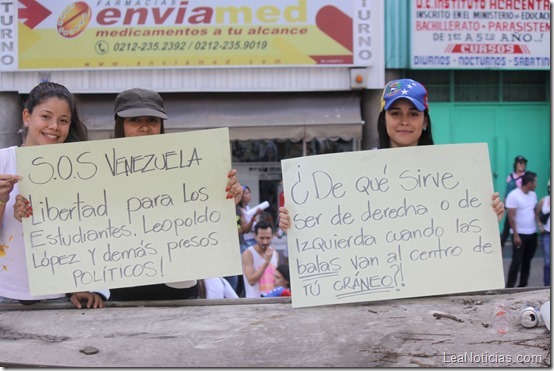 TURNO
FARMACIAS
enviamed
medicamentos a tu alcance
0212-235.2392 / 0212-235.9019
www.enviamed.com
TURNO
INSCRITO EN EL MINISTERIO DE EDUCACION
BACHILLERATO - PARASISTEMA
DE 1er A 5to AÑO...
CURSOS
DIURNOS - NOCTURNOS - SABATINOS
S.O.S VENEZUELA
Libertad para los
Estudiantes, Leopoldo
López y demás presos
POLÍTICOS!
¿De qué sirve
ser de derecha o de
Izquierda cuando las
balas van al centro de
TÚ CRÁNEO?!
LeaNoticias.com